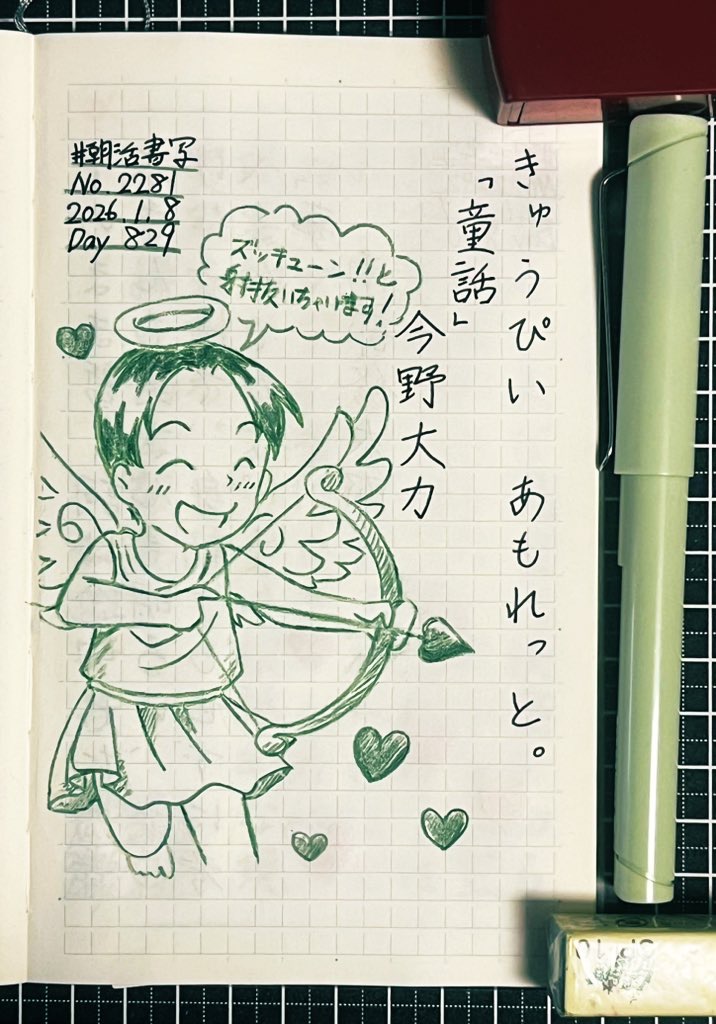 #朝活書写
No.2281
2026.1.8
Day 829
きゅうぴい　あもれっと。
「童話」
今野大力
ズッキューン!!と
射抜いちゃいます!